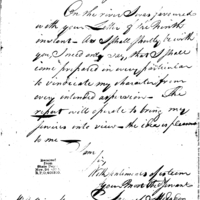 On the river I was favored
with your Letter of the Ninth
instant - As I shall shortly be with
you, I need only say, that I shall
come prepared in every particular
to vindicate my character from
every intended aspersion - The
report will operate to bring my
powers into view - the idea is pleasing
to me -
I am
Sir
With sentiments of esteem
your Most Obt Servant